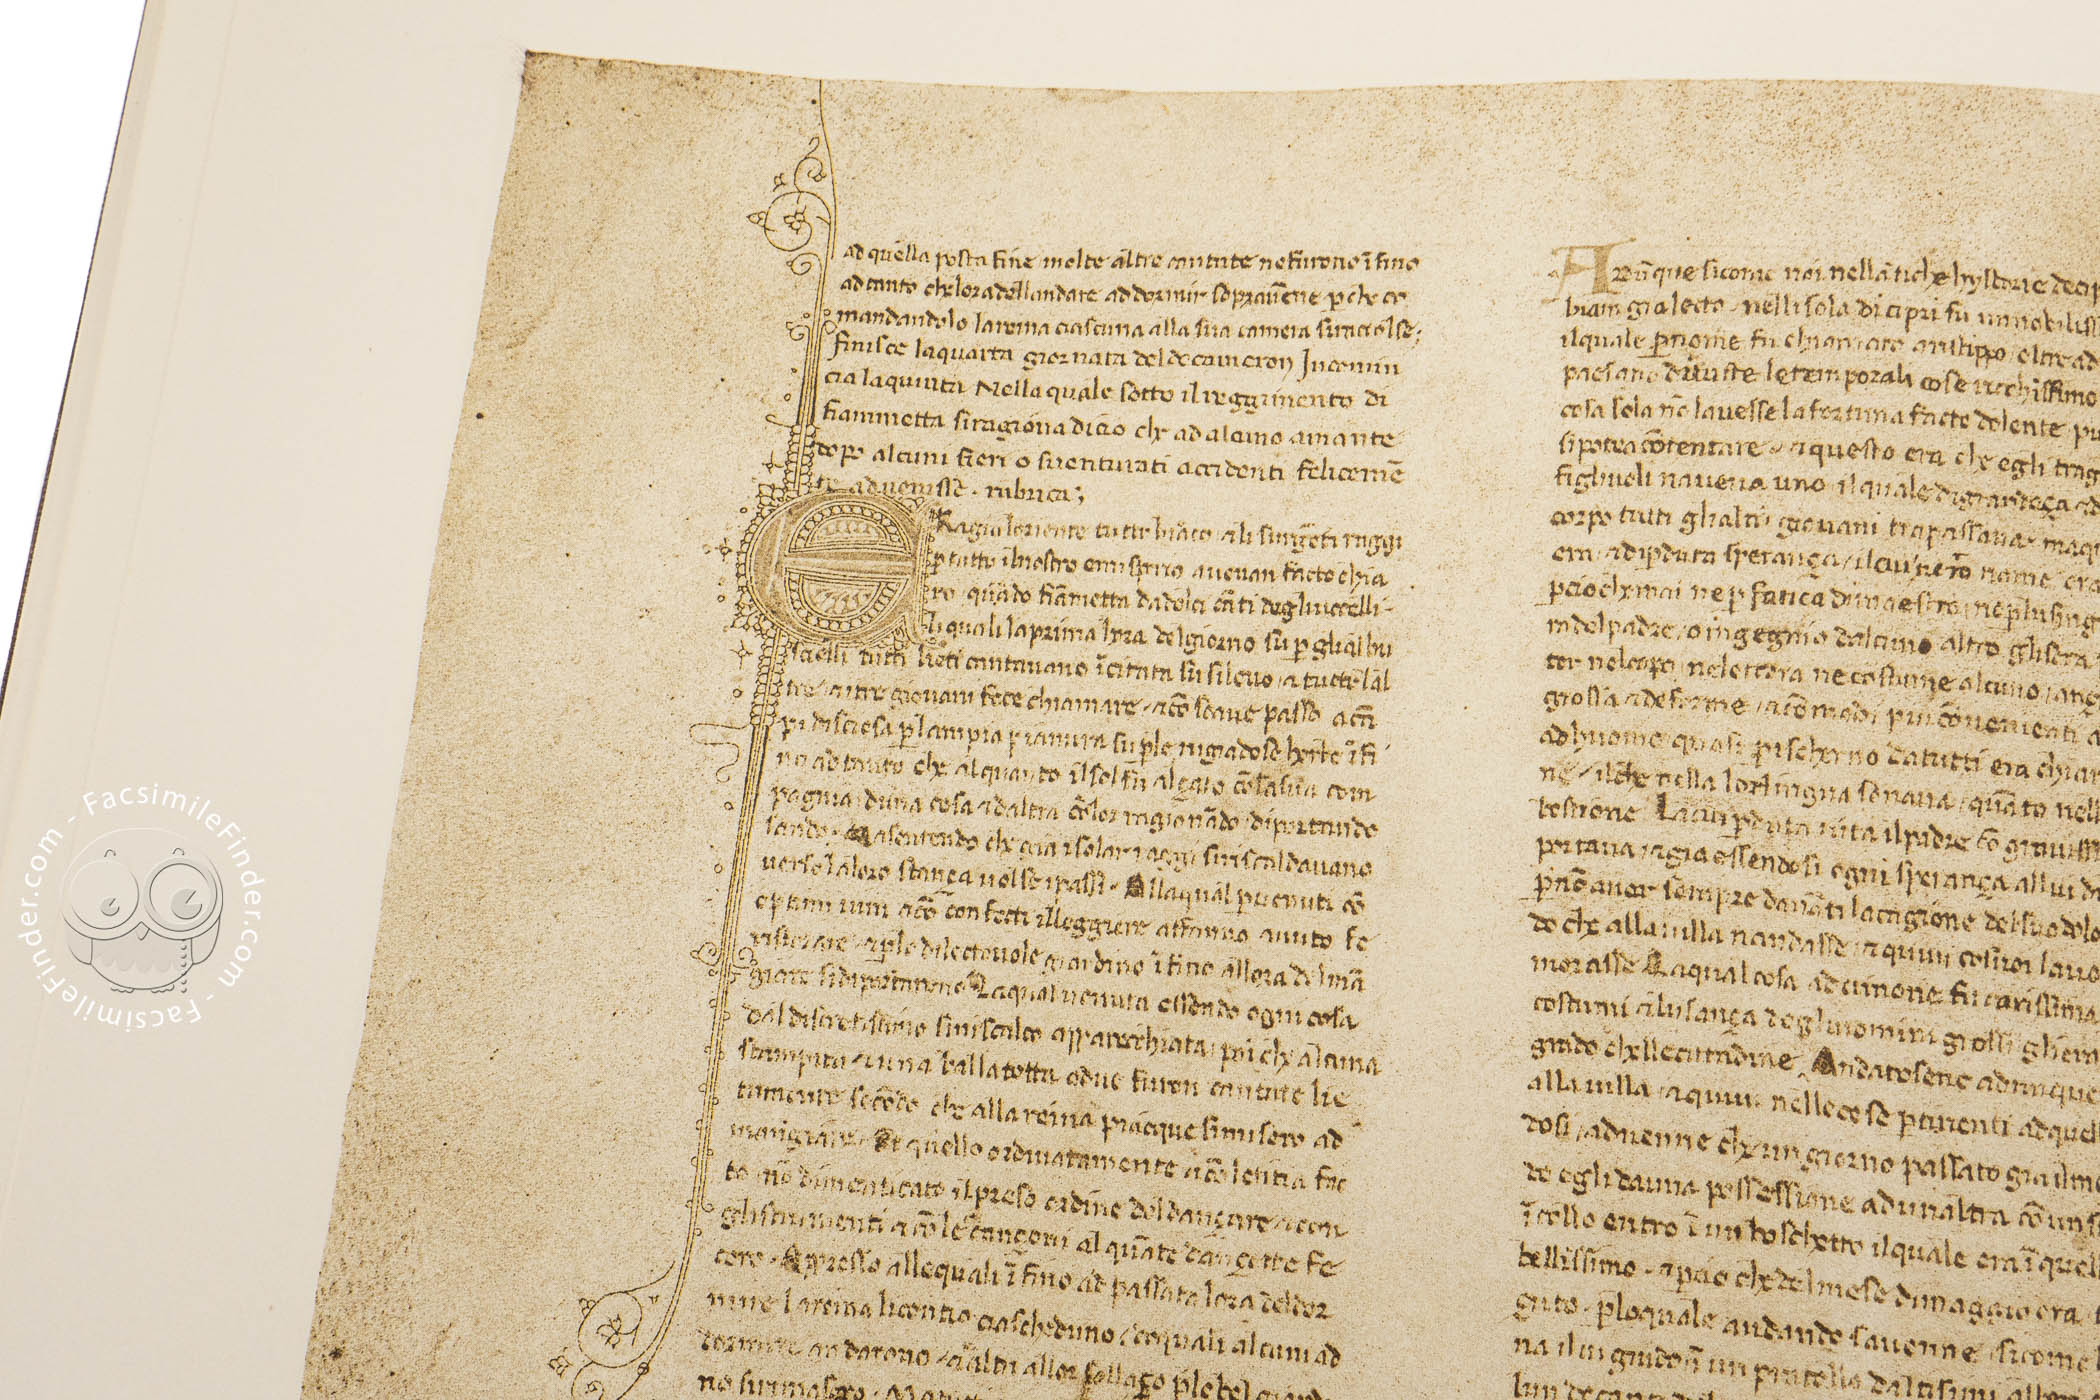 ad quella posta fine molte altre cantate ne furono ĩ fino
ad tanto che lora dellandare ad dormir sopraũene p che co
mandandolo la reina ciascuna alla sua camera si raccolse;
finisce la quarta giornata del decameron Incomin
cia la quinta Nella quale sotto il reggimento di
fiammetta si ragiona di cio che ad alcuno amante
dopo alcuni fieri o suenturati accidenti felicemẽ
te aduenisse · rubrica;
ERa gia loriente tutto biãco & li surgẽti raggi
p tutto il nostro emisperio aueuan facto chia
ro quãdo fiãmetta da dolci cãti degli uccelli
li quali la prima hora del giorno su p gli albu
scielli tutti lieti cantauano ĩcitata su si leuo & tutte lal
tre & i tre giouani fece chiamare & cõ soaue passo a cã
pi discesa p lampia pianura su p le rugiadose herbe ĩ fi
no ad tanto che alquanto il sol fu alçato cõ la sua com
pagnia duna cosa & daltra cõ lor ragionãdo diportando
sando · Ma sentendo che gia i solar raggi si riscaldauano
uerso la loro stança uolse i passi · Alla qual puenuti cõ
optimi uini & cõ confecti il leggiere affanno auuto fe
ristorare & p lo dilecteuole giardino ĩ fino allora del mã
giare si diportarono La qual uenuta essendo ogni cosa
dal discretissimo siniscalco apparecchiata poi che alcuna
stampita & una ballatetta o due furon cantate lie
tamente secõdo che alla reina piacque si misero ad
mangiare · Et quello ordinatamente & cõ letitia fac
to nõ dimenticato il preso ordine del dançare & con
gli strumenti & cõ le cançoni alquãte dançette fe
cero · Appresso alle quali ĩ fino ad passata lora del dor
mire la reina licentio ciascheduno de quali alcuni ad
dormire andarono & altri al lor sollaço p lo bel giard
no si rimasero ·
ADũque sicome noi nellãtiche hystorie de cip
biam gia lecto nellisola di cipri fu un nobiliss
il quale p nome fu chiamato aristippo oltre ad
paesano di tutte le temporali cose ricchissimo
cosa sola nõ lauesse la fortuna facto dolente pu
si potea cõtentare · & questo era che egli trag
figliuoli naueua uno il quale di grandeça & d
corpo tutti gli altri giouani trapassaua ma q
era & di pduta sperança il cui uero nome era
pcio che mai ne p fatica di maestro ne p lusing
ta del padre o ingegnio dalcuno altro gli sera
ter nel capo ne lettera ne costume alcuno ançi
grossa & deforme & cõ modi piu cõuenienti a
ad huomo quasi p ischerno da tutti era chiam
ne il che nella lor lingua sonaua quãto nell
bestione La cui pduta uita il padre cõ grauissi
portaua & gia essendosi ogni sperança a lui d
p nõ auer sempre dauãti la cagione del suo dolo
do che alla uilla nandasse & quiui co suoi lauo
morasse La qual cosa ad cimone fu carissima
costumi & lusança degli uomini grossi gli era
grado che le cittadine Andatosene adunque
alla uilla & quiui nelle cose ptinenti ad quel
dosi aduenne che un giorno passato gia il me
do egli da una possessione ad unaltra cõ un s
ĩ collo entro ĩ un boschetto il quale era ĩ quel
bellissimo & pcio che del mese di maggio era
çuto · p lo quale andando sauenne sicome l
na il ui guido ĩ un pratello daltissimi alber
FacsimileFinder.com - FacsimileFinder.com - FacsimileFinder.com